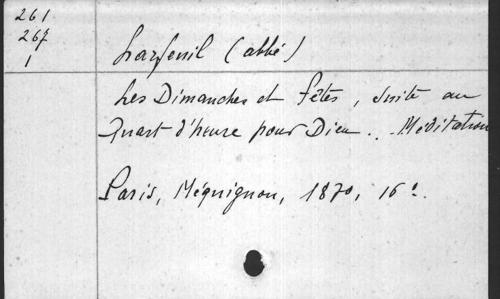 261
267
1
Larfeuil (abbé)
Les Dimanches et Fêtes, suite au
Quart d'heure pour Dieu. Méditation
Paris, Méquignon, 1870, 16º.